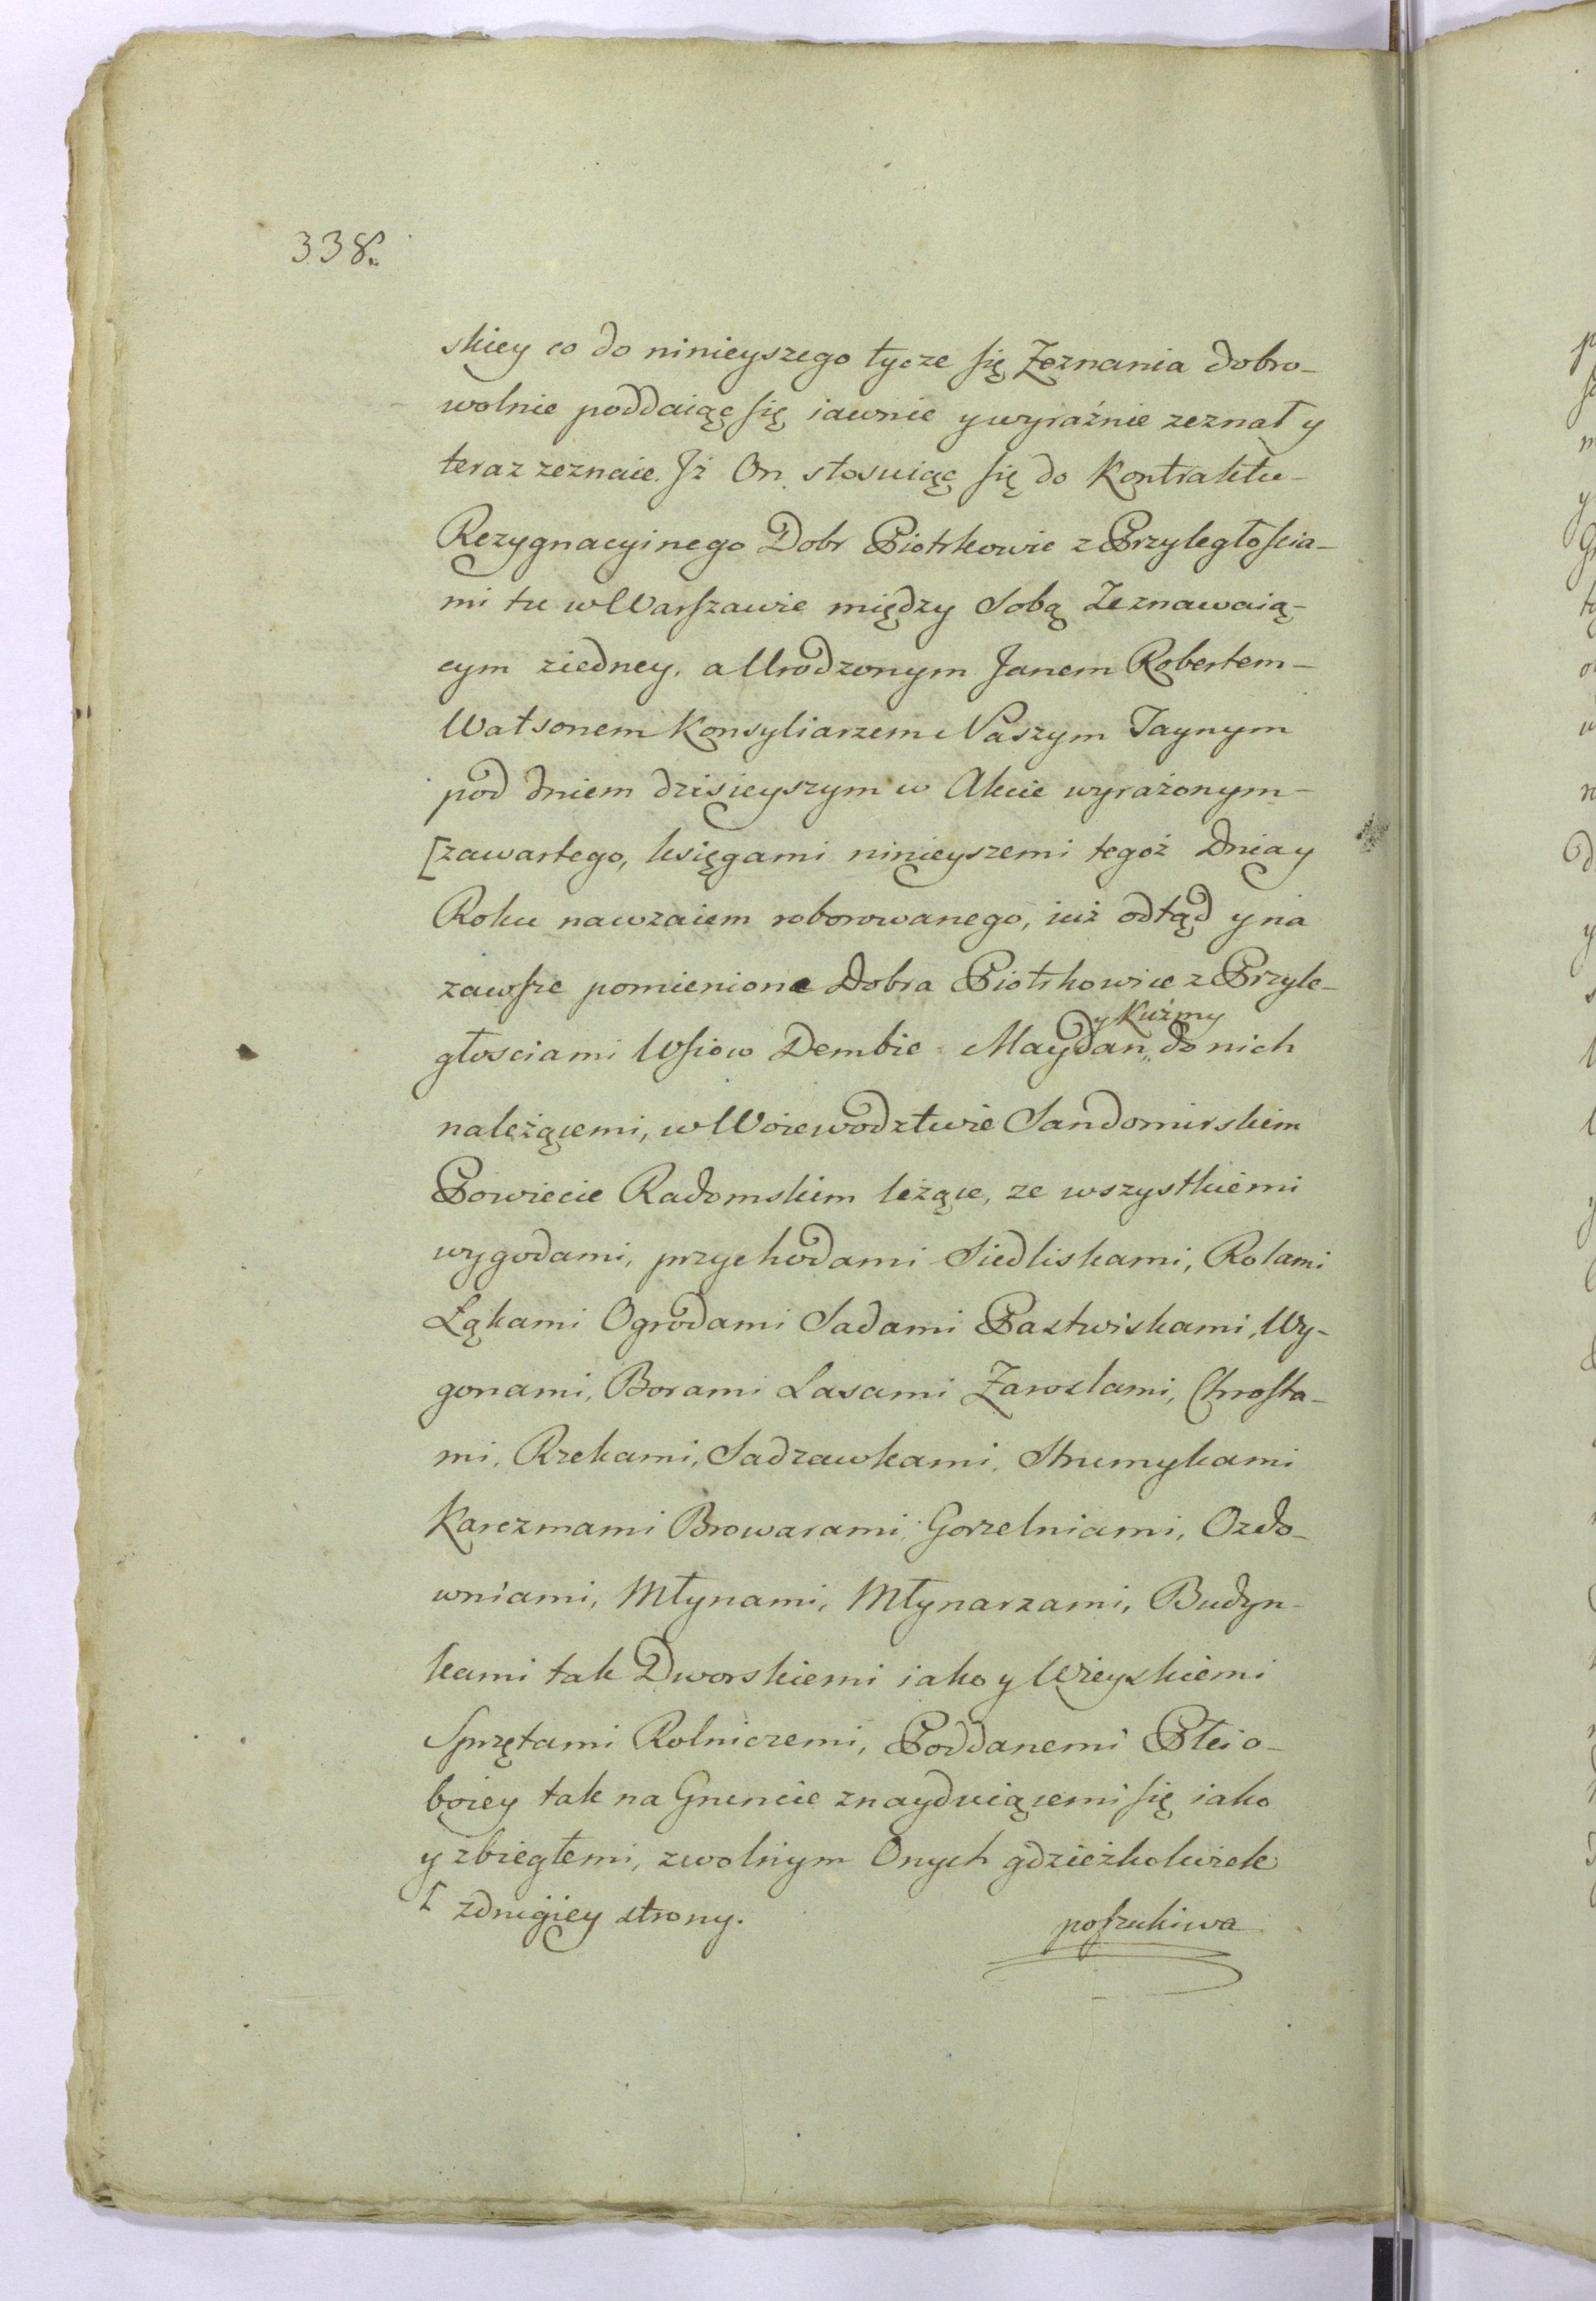 338.
skiey co do ninieyszego tycze się Zeznania dobro-
wolnie poddaiąc się iawnie y wyraźnie zeznał y
teraz zeznaie. Jż On stosuiąc się do Kontraktu-
Rezygnacyinego Dobr Piotrkowic z Przyległościa-
mi tu w Warszawie między Sobą Zeznawaią-
cym ziedney, a Urodzonym Janem Robertem-
Watsonem Konsyliarzem Naszym Taynym
pod dniem dzisieyszym w Akcie wyrażonym-
[zawartego, księgami ninieyszemi tegoż Dnia y
Roku nawzaiem roborowanego, iuż odtąd y na
zawsze pomienione Dobra Piotrkowice z Przyle-
y Kuźmy
głosciami Wsiow Dembie Maydan,, do nich
należącemi, w Woiewodztwie Sandomirskim
Powiecie Radomskim leżące, ze wszystkiemi
wygodami, przychodami Siedliskami, Rolami
Łąkami Ogrodami Sadami Pastwiskami, Wy-
gonami, Borami Lasami Zaroslami, Chrosta-
mi, Rzekami, Sadzawkami, Strumykami
Karczmami Browarami, Gorzelniami, Ozdo-
wniami, Młynami, Młynarzami, Budyn-
kami tak Dworskiemi iako y Wieyskiemi
Sprzętami Rolniczemi, Poddanemi Płci o-
boiey tak na Gruncie znayduiącemi się iako
y zbiegłemi, zwolnym Onych gdzieżkolwiek
[ zdrugiey strony.
poszukiwa